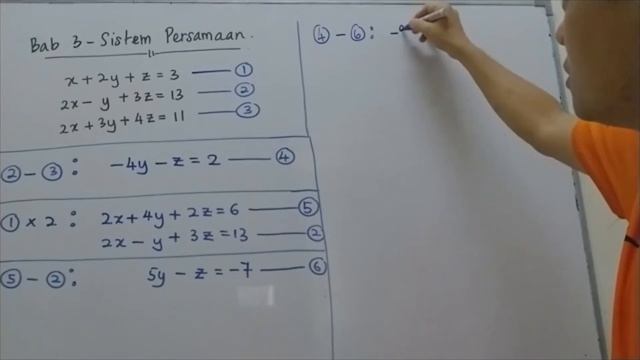 Bab 3 - Sistem Persamaan.
x + 2y + z = 3 —— ①
2x - y + 3z = 13 —— ②
2x + 3y + 4z = 11 —— ③
② - ③ : -4y - z = 2 —— ④
① × 2 : 2x + 4y + 2z = 6 —— ⑤
2x - y + 3z = 13 —— ②
⑤ - ② : 5y - z = -7 —— ⑥
④ - ⑥ : -